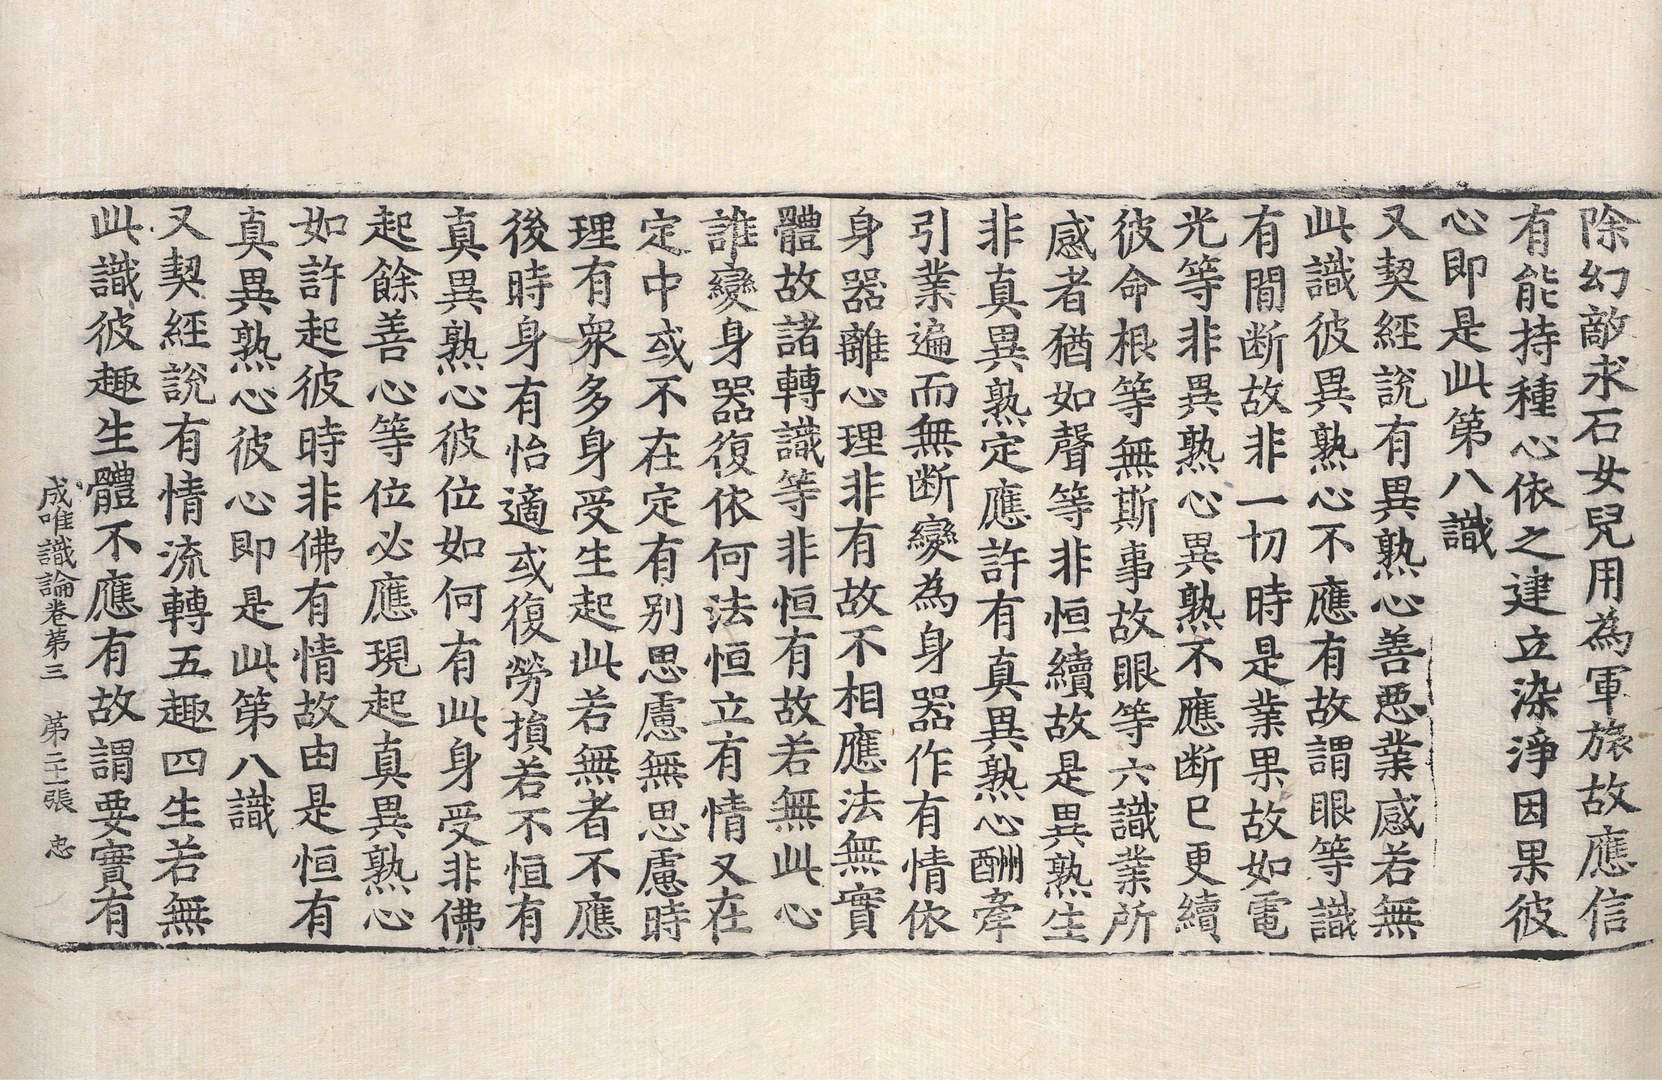 除幻敵求石女兒用為軍旅故應信
有能持種心依之建立染淨因果彼
心即是此第八識
又契經說有異熟心善惡業感若無
此識彼異熟心不應有故謂眼等識
有間断故非一切時是業果故如電
光等非異熟心異熟不應断已更續
彼命根等無斯事故眼等六識業所
感者猶如聲等非恒續故是異熟生
非真異熟定應許有真異熟心酬牽
引業遍而無断變為身器作有情依
身器離心理非有故不相應法無實
體故諸轉識等非恒有故若無此心
誰變身器復依何法恒立有情又在
定中或不在定有別思慮無思慮時
理有衆多身受生起此若無者不應
後時身有怡適或復勞損若不恒有
真異熟心彼位如何有此身受非佛
起餘善心等位必應現起真異熟心
如許起彼時非佛有情故由是恒有
真異熟心彼心即是此第八識
又契經說有情流轉五趣四生若無
此識彼趣生體不應有故謂要實有
成唯識論卷第三 第二十一張 忠